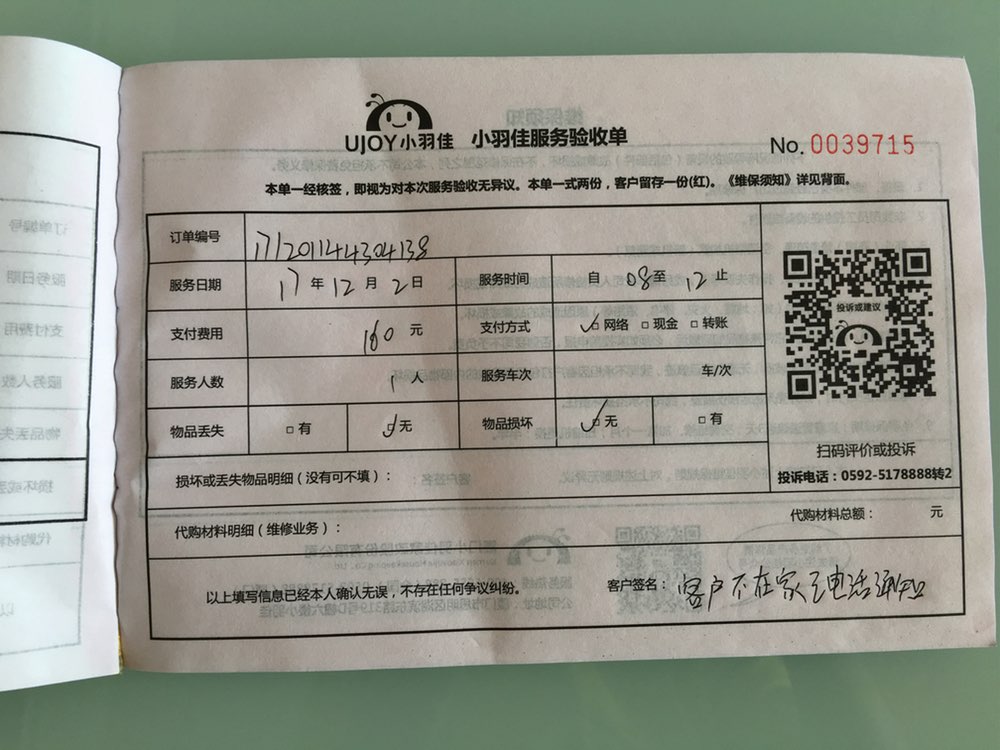 UJOY小羽佳 小羽佳服务验收单
No. 0039715
本单一经核签，即视为对本次服务验收无异议。本单一式两份，客户留存一份(红)。《维保须知》详见背面。
订单编号 171201144304138
服务日期 17 年 12 月 2 日 服务时间 自 08 至 12 止
支付费用 160 元 支付方式 ✓□网络 □现金 □转账
服务人数 1 人 服务车次 车/次
物品丢失 □有 ✓□无 物品损坏 ✓□无 □有
投诉或建议
扫码评价或投诉
投诉电话：0592-5178888转2
损坏或丢失物品明细（没有可不填）：
代购材料明细（维修业务）： 代购材料总额： 元
以上填写信息已经本人确认无误，不存在任何争议纠纷。 客户签名： 客户不在家 电话通知